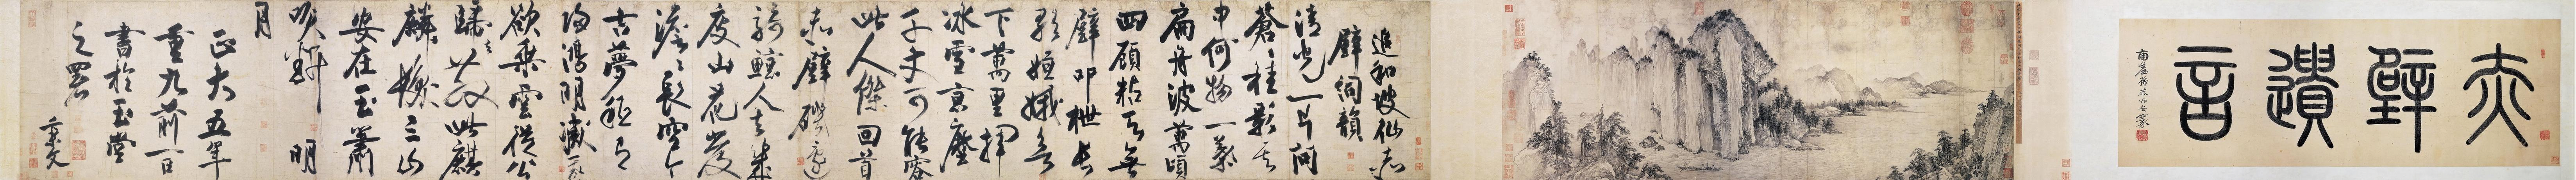 赤壁遺言
追和坡仙赤
壁詞韻
清光一片問
蒼〻桂影其
中何物一葉
扁舟波萬頃
四顧粘天無
壁叩枻長
歌姮娥欲
下萬里揮
冰雪京塵
千丈可能容
此人傑回首
赤壁磯邊
騎鯨人去幾
度山花發
澹〻長空今
古夢秖有
歸鴻明滅我
欲乘雲從公
歸去散此麒
麟髮三山
安在玉簫
吹斷 明
月
正大五年
重九前一日
書於玉堂
之署
秉文